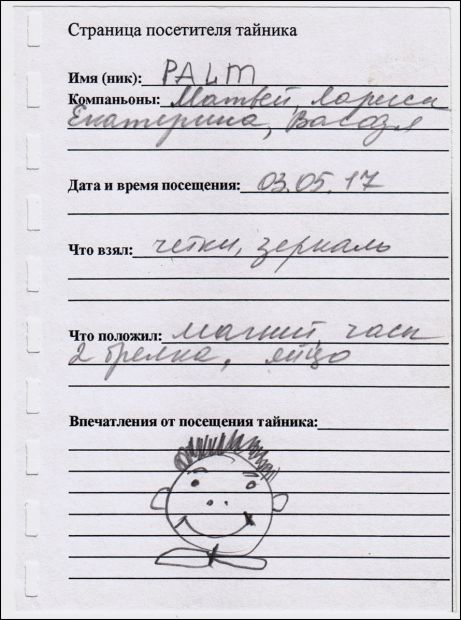 Страница посетителя тайника
Имя (ник): PALM
Компаньоны: Матвей, Лариса
Екатерина, Васодя
Дата и время посещения: 03.05.17
Что взял: чётки, зеркаль
Что положил: магнит, часы
2 брелка, яйцо
Впечатления от посещения тайника: